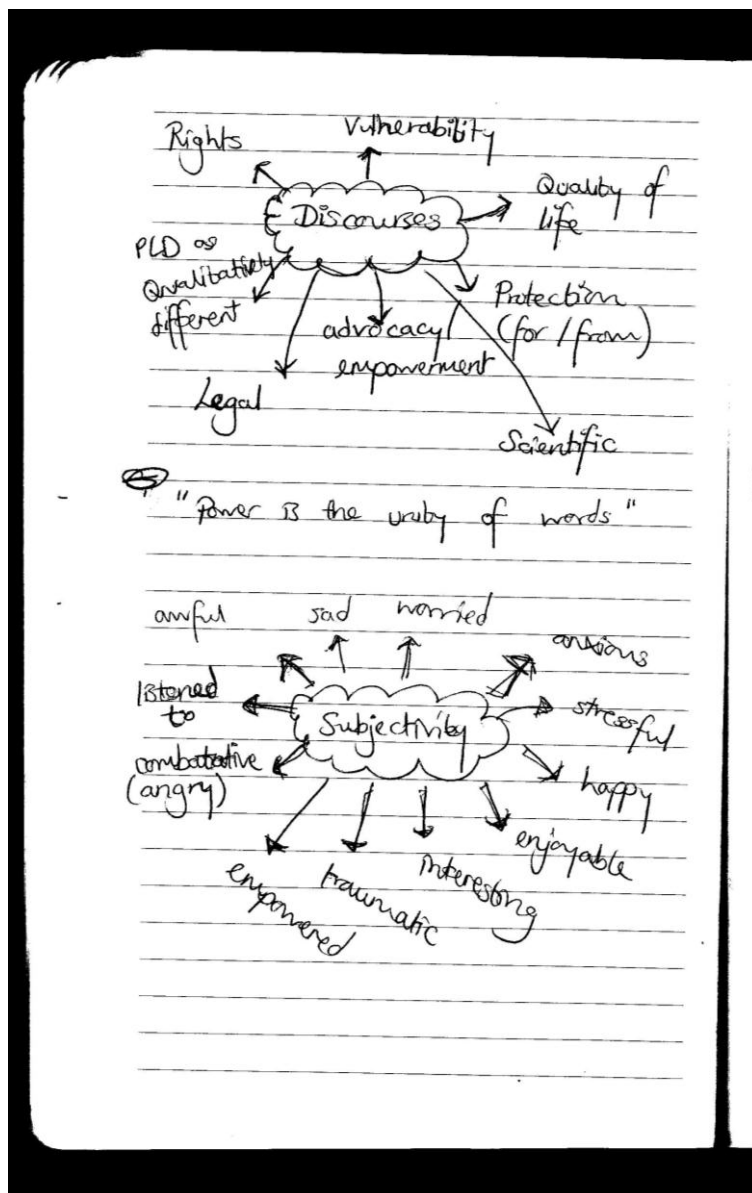 Rights
Vulnerability
Discourses
Quality of
life
PLD as
Qualitatively
different
Protection
(for / from)
advocacy/
empowerment
Legal
Scientific
"Power is the of words"
awful
sad
worried
anxious
listened
to
Subjectivity
stressful
combatative
(angry)
happy
enjoyable
interesting
traumatic
empowered